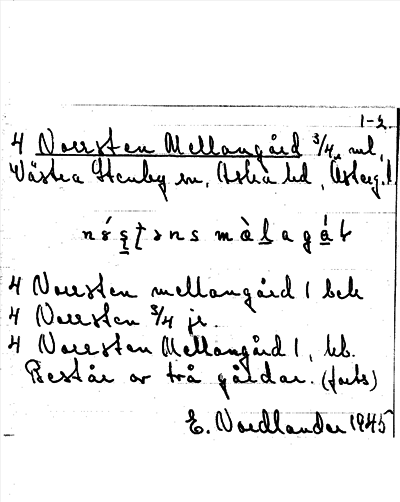 1-2.
4 Norrsten Mellangård 3/4, ml,
Västra Stenby sn, Aska hd, Östergl.
4 Norrsten mellangård 1 bek
4 Norrsten 3/4 je.
4 Norrsten Mellangård 1, kb.
Består av två gårdar. (forts)
E. Nordlander 1945